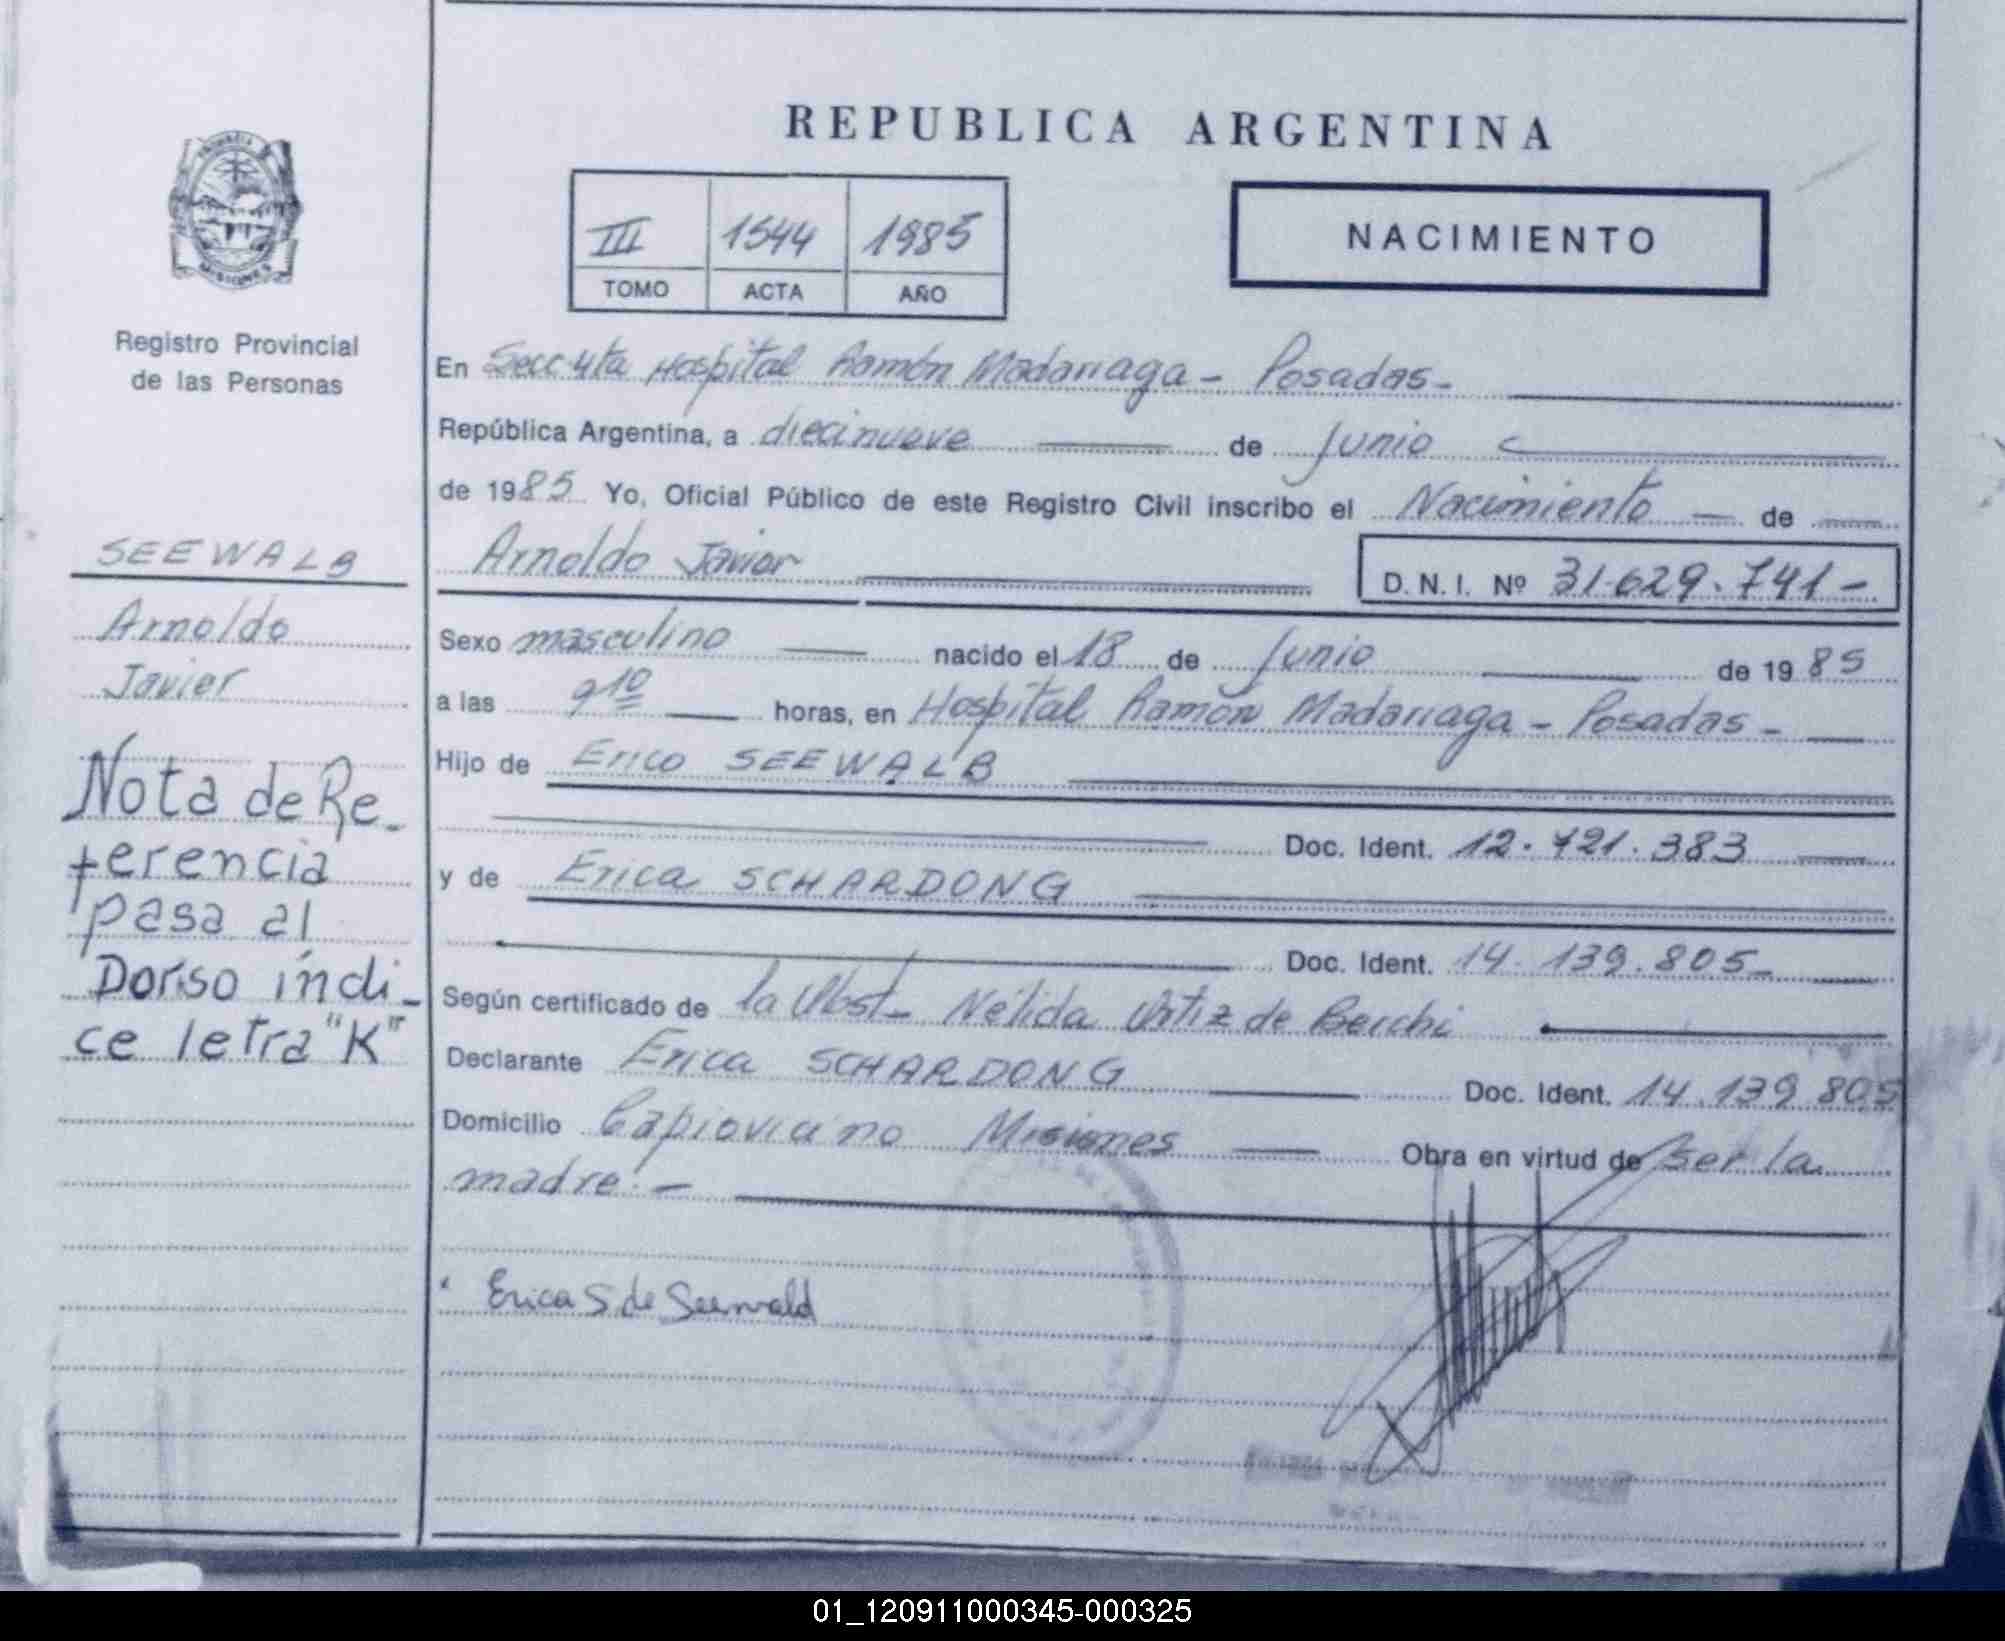 REPUBLICA ARGENTINA
III 1544 1985
TOMO ACTA AÑO
NACIMIENTO
Registro Provincial
de las Personas
SEEWALB
Arnoldo
Javier
Nota de Re-
ferencia
pasa al
Dorso indi-
ce letra "K"
En Secc 4ta Hospital Ramón Madariaga - Posadas-
República Argentina, a diecinueve de Junio
de 1985 Yo, Oficial Público de este Registro Civil inscribo el Nacimiento de
Arnoldo Javier D.N.I. Nº 31.629.741-
Sexo masculino nacido el 18 de Junio de 1985
a las 9 10 horas, en Hospital Ramón Madariaga - Posadas-
Hijo de Erico SEEWALB
Doc. Ident. 12.721.383
y de Erica SCHARDONG
Doc. Ident. 14.139.805-
Según certificado de la Obst- Nélida Ortiz de
Declarante Erica SCHARDONG Doc. Ident. 14.139.805
Domicilio Capioviciño Misiones Obra en virtud de ser la
madre.-
Erica S de Seewald
01_120911000345-000325